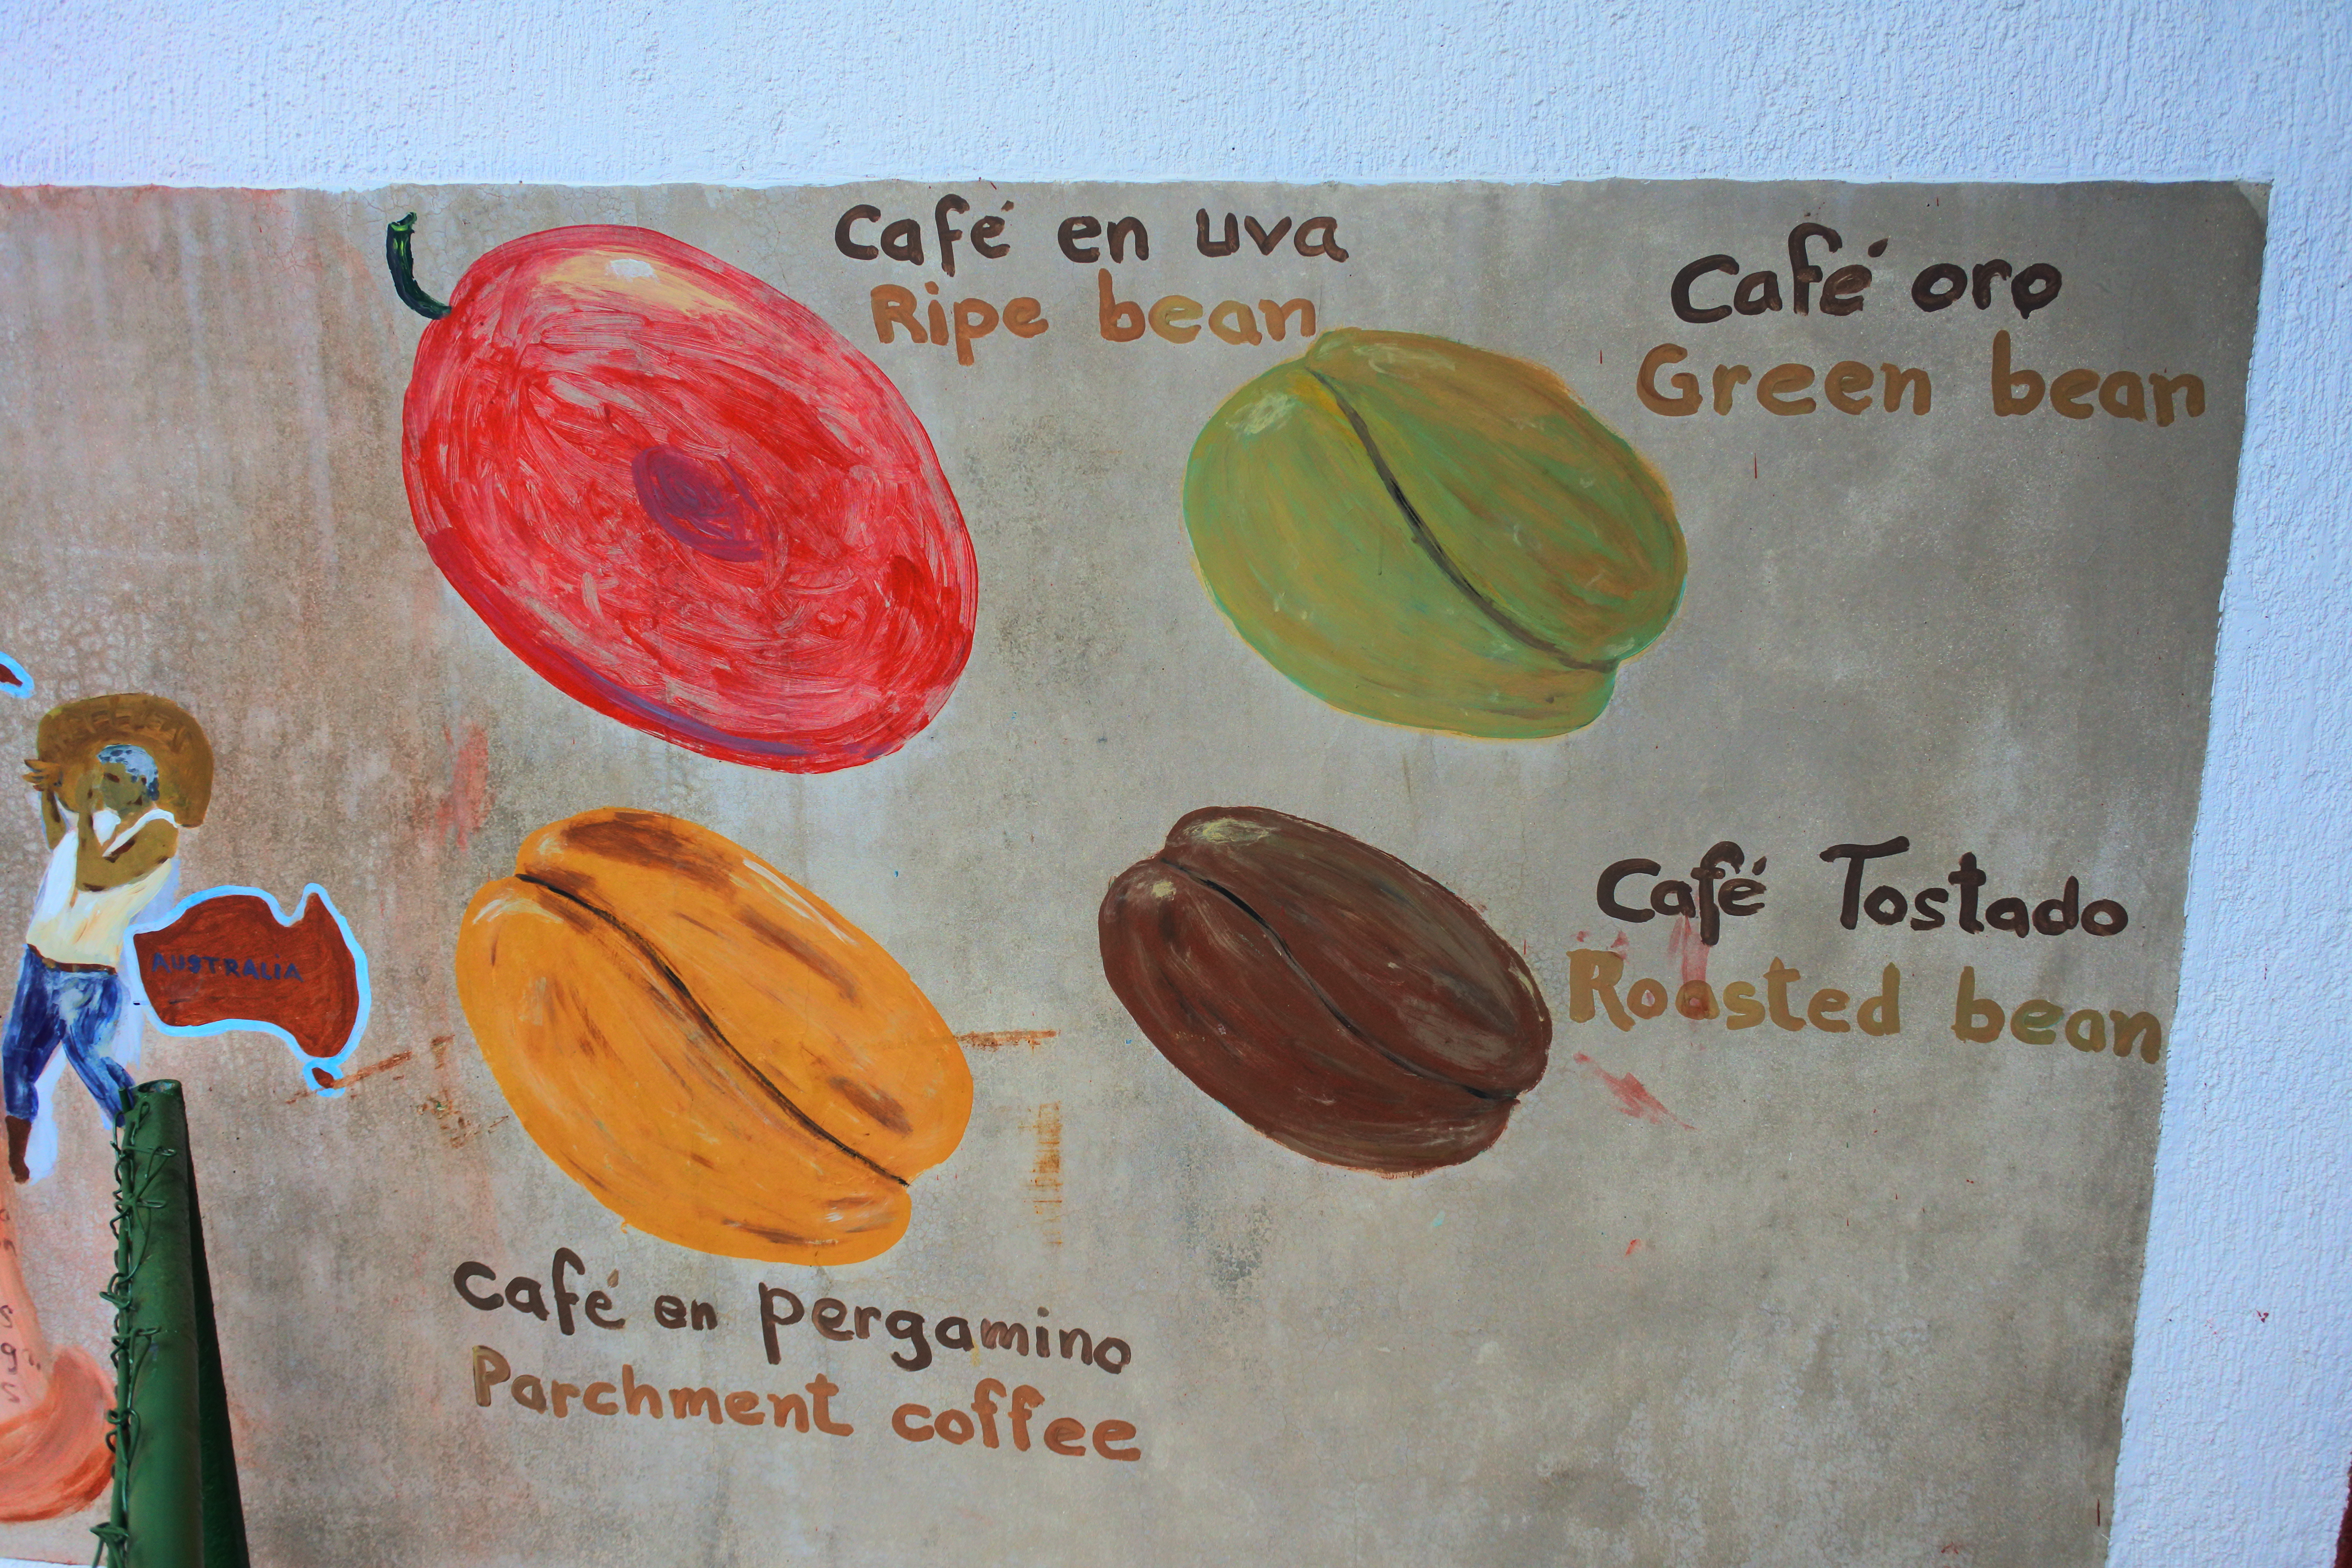 Café en uva
Ripe bean
Café oro
Green bean
AUSTRALIA
Café Tostado
Roasted bean
Café en pergamino
Parchment coffee